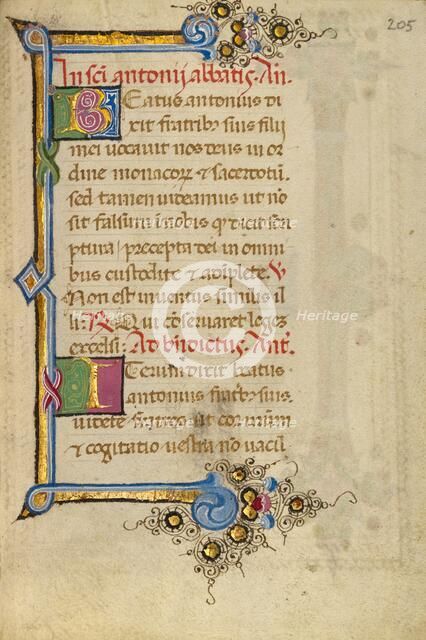 205
In sci antonij abbatis. An.
Beatus antonius di
xit fratribꝫ suis filij
mei uocauit nos deus in or
dine monacoꝝ ⁊ sacerdotũ.
sed tamen uideamus ut no
sit falsum in nobis qđ dicit scri
ptura / precepta dei in omni
bus custodite ⁊ adiplete. ℣
Non est inuentus similis il
li: ℟ Qui cõseruaret leges
excelsi: Ad bñdictus. Ant.
Iterum dixit beatus
antonius fratribꝫ suis.
uidete fratres ut cor nr̃um
⁊ cogitatio uestra nõ uacũ
Heritage
Heritage
Heritage
Heritage